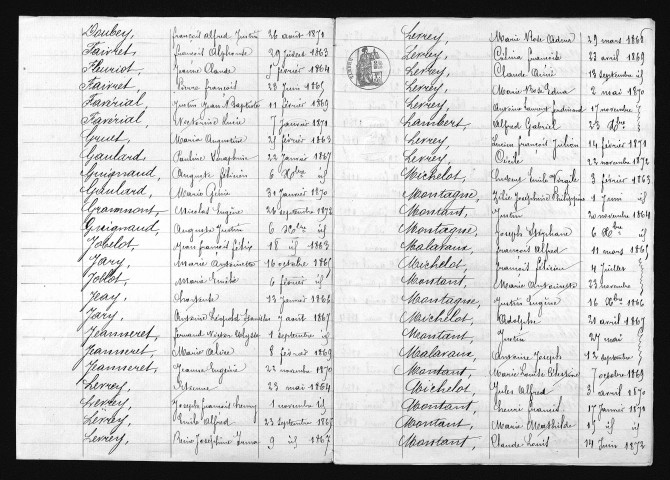 Doubey, françois Alfred Justin 26 août 1870
Fairet, françois Alphonse 29 Juillet 1863
Fleuriot, Claude 5 février 1864
Fairet, Pierre françois 28 Juin 1865
Favérial, Justin Jean Baptiste 11 février 1869
Favérial, Victorine 7 Janvier 1871
Gruet, Maria Augustine 25 février 1863
Gaulard, Pauline Séraphine 22 Janvier 1867
Guignaud, Auguste félicien 6 Xbre id
Gaulard, Marie 31 Janvier 1870
Grammont, Nicolas Eugène 1872
Guignaud, Auguste Justin 6 Xbre id
Jobelot, Jean françois félix 18 id 1863
Jary, Marie Antoinette 16 octobre 1865
Jollot, Marie Emilie 6 février id
Jeay, Constant 13 Janvier 1866
Jary, Antoine Léopold Stanislas 7 avril 1867
Jeanneret, fernand Victor Ulysse 1 septembre id
Jeanneret, Marie Alice 8 février 1869
Jeanneret, Jeanne Eugénie 22 novembre 1870
Levrey, 23 mai 1864
Levrey, Joseph françois 1 novembre id
Levrey, Emile Alfred 23 septembre 1865
Levrey, Marie Joséphine 9 id 1867
Levrey, Marie Rose 29 mars 1868
Levrey, Célina 23 avril 1869
Levrey, Claude 18 septembre id
Levrey, Marie Rose Edna 2 mai 1870
Levrey, Laurent ferdinand 17 novembre
Lambert, Alfred Gabriel 23 Xbre
Levrey, Lucien françois Julien 14 février 1871
Levrey, 22 novembre 1872
Michelot, Emile Virgile 3 février 1863
Montagne, Joséphine Philippine 1 Juin id
Montant, Justin 20 novembre 1864
Montagne, Joseph Stéphane 6 Xbre id
Malavaux, françois Alfred 11 mars 1865
Michelot, françois félicien 4 Juillet
Montant, Marie Antoinette 23 novembre
Montagne, Justin Eugène 16 Xbre 1866
Michelot, Adolphe 21 avril 1867
Montant, Justin 27 mai
Malavaux, Antoine Joseph 12 septembre
Montant, Marie Louise Célestine 7 octobre 1869
Michelot, Jules Alfred 3 avril 1870
Montant, françois 17 Janvier 1871
Montant, Marie Mathilde 15 id id
Montant, Claude Louis 14 Juin 1872